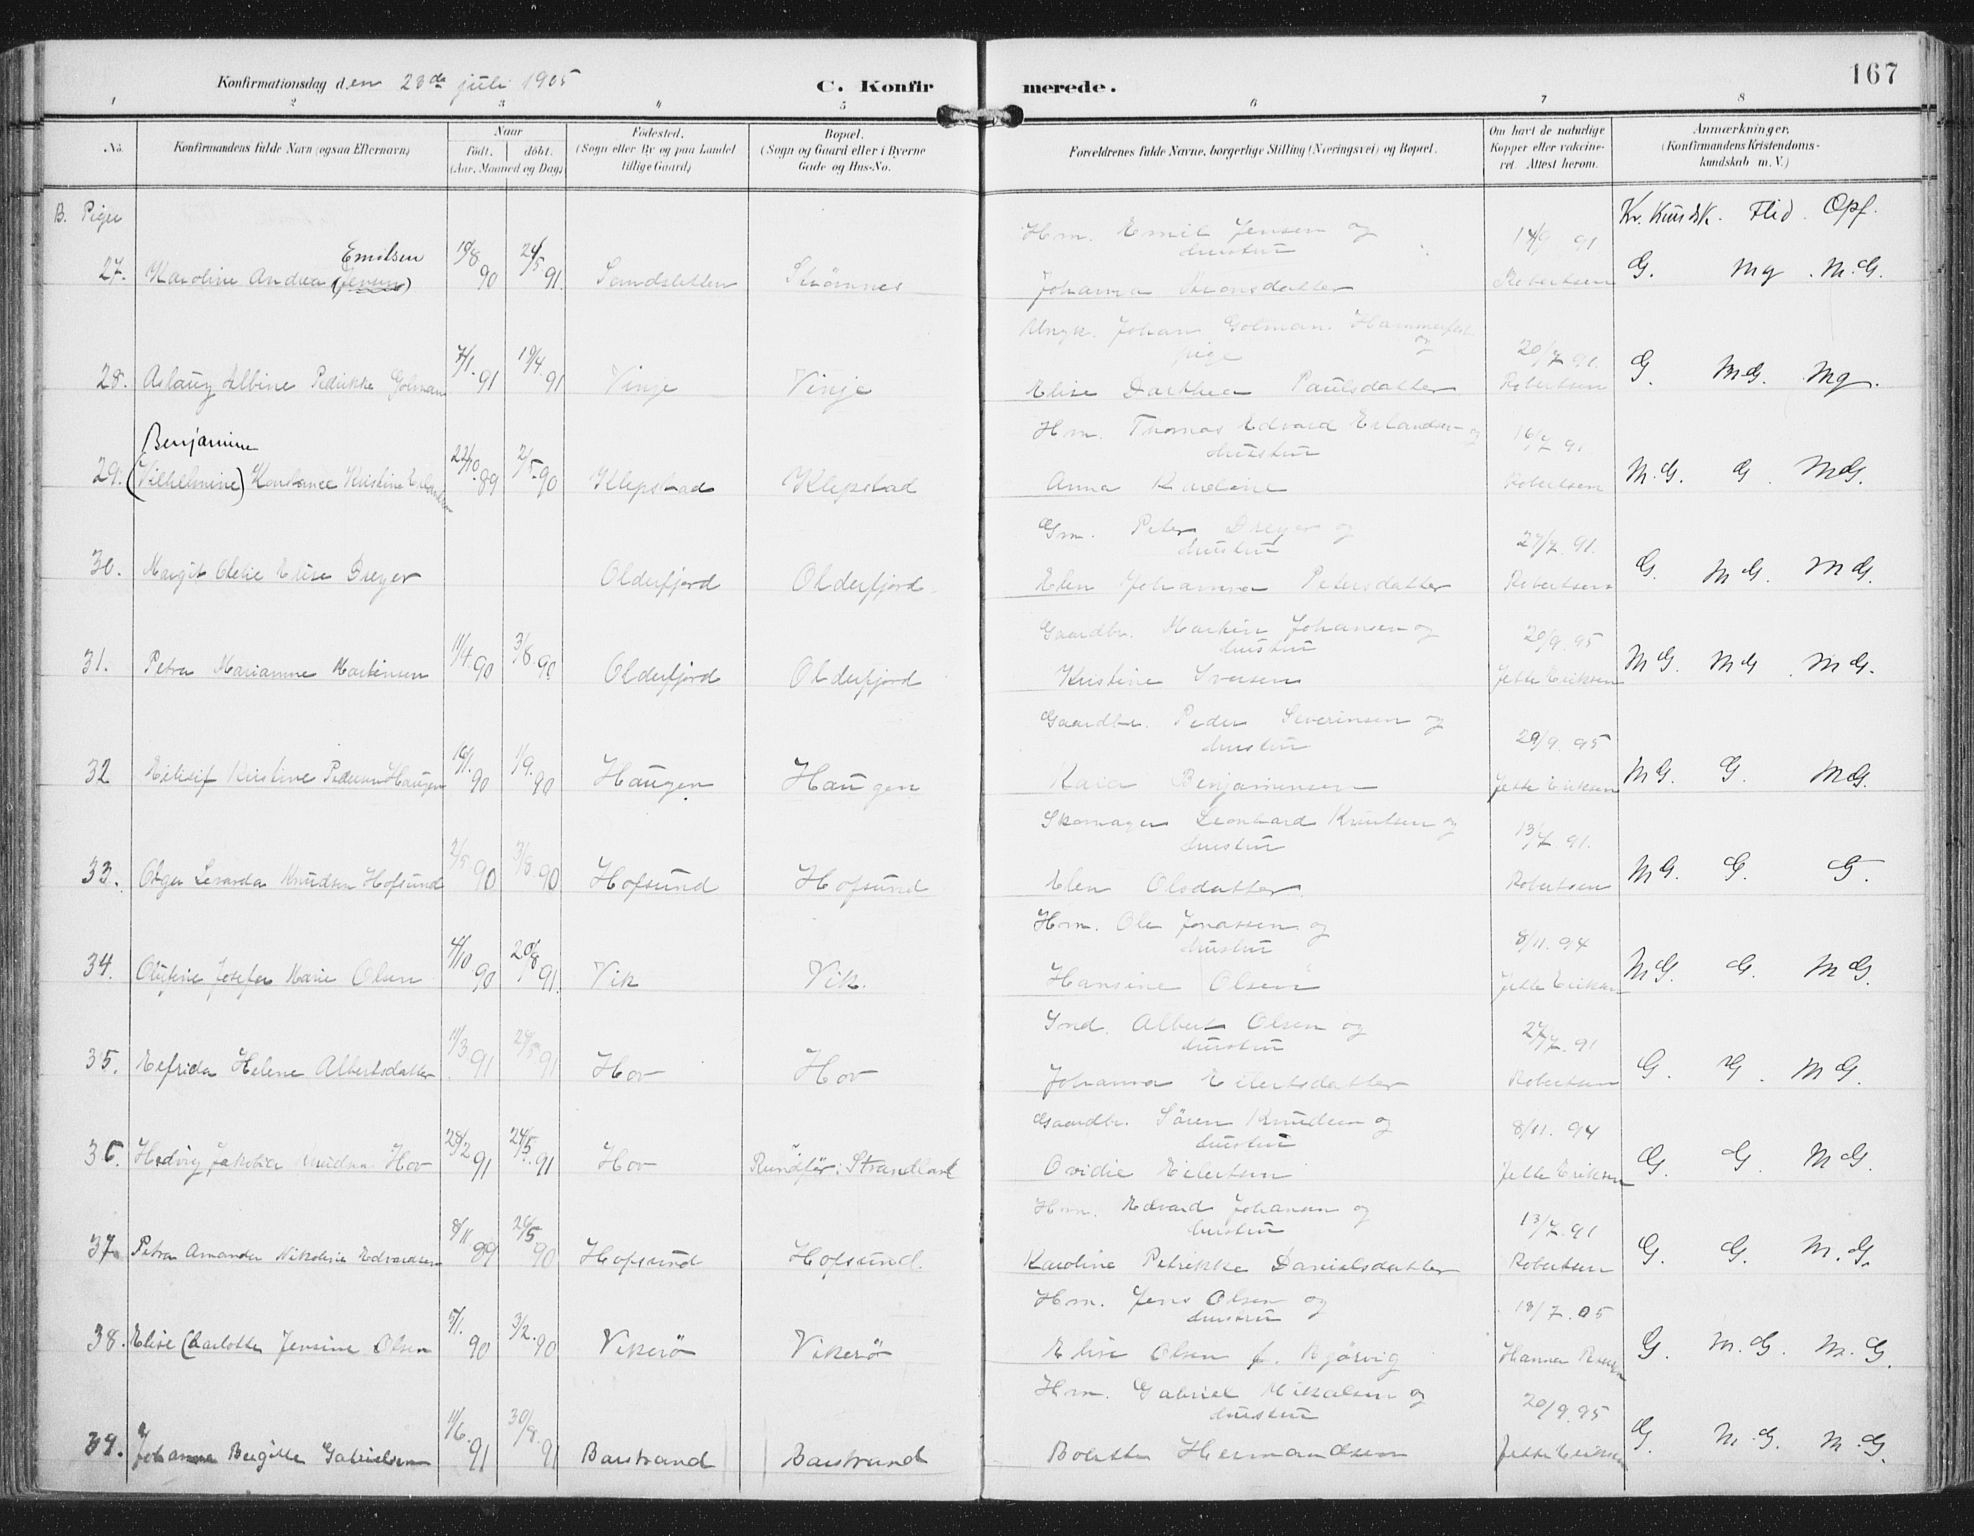 167
Konfirmationsdag den 23de juli 1905
C. Konfirmerede.
1 2 3 4 5 6 7 8
No. Konfirmandens fulde Navn (ogsaa Efternavn) Naar Født. døbt. (Aar, Maaned og Dag) Fødested. (Sogn eller By og paa Landet tillige Gaard) Bopæl. (Sogn og Gaard eller i Byerne Gade og Hus-No. Forældrenes fulde Navne, borgerlige Stilling (Næringsvei) og Bopæl. Om havt de naturlige Kopper eller vakcineret. Attest herom. Anmærkninger. (Konfirmandens Kristendomskundskab m. V.)
B. Piger Kr. Kundsk. Flid. Opf.
Hm. Emil Jensen og hustru
27. Karoline Andrea (Jensen) Emilsen 19/8 90 24/5 91 Sandsletten Strømnes Johanna 14/9 91 Robertsen G. Mg. M.G.
Ungk. Johan Golman. Hammerfest og pige
28. Aslaug Albine Petrikke Golman 7/1 91 19/4 91 Vinje Vinje Elise Dorthea Paulsdatter 20/7 91. Robertsen G. M.G. Mg.
Hm. Thomas Edvard Erlandsen og hustru
29. Benjamine (Vilhelmine) Konstance Kristine Erlandsen 22/10 89 2/5 90 Klepstad Klepstad Anna Karoline 16/7 91 Robertsen M.G. G. MG.
Gm. Peter Dreyer og hustru
30. Margit Oletie Elise Dreyer Olderfjord Olderfjord Elen Johanna Petersdatter 27/7 91. Robertsen G. MG. MG.
Gaardbr. Martin Johansen og hustru
31. Petra Marianne Martinsen 11/4 90 3/8 90 Olderfjord Olderfjord Kristine Iversen 20/9 95 Jette Eriksen MG. MG MG.
Gaardbr. Peder Severinsen og hustru
32 Eilisif Kristine Pedersen Haugen 16/1 90 1/9 90 Haugen Haugen Kaia Benjaminsen 20/9 95 Jette Eriksen MG. G. MG.
Skomager Leonhard Knutsen og hustru
33. Olga Leonarda Knudsen Hofsund 2/5 90 3/8 90 Hofsund Hofsund Elen Olsdatter 13/7 91. Robertsen MG. G. G.
Hm. Ole Jonassen og hustru
34. Olufine Josefa Marie Olsen 4/10 90 20/8 91. Vik Vik. Hansine Olsen 8/11. 94 Jette Eriksen MG. G. MG.
Ind. Albert Olsen og hustru
35. Elfrida Helene Albertsdatter 11/3 91 24/5 91 Hov Hov Johanna Eilertsdatter 27/7. 91 Robertsen G. G. MG.
Gaardbr. Søren Knudsen og hustru
36. Hedvig Jakobia Knudsen Hov 28/2 91 24/5 91 Hov Strandland Ovidie Eilertsen 8/11. 94 Jette Eriksen G. G. MG.
Hm. Edvard Johansen og hustru
37. Petra Amanda Nikoline Edvardsen 8/11 89 26/5 90 Hofsund Hofsund. Karoline Petrikke Danielsdatter 13/7. 91 Robertsen G. G. M.G.
Hm. Jens Olsen og hustru
38. Elise Charlotte Jensine Olsen 5/1. 90 3/2. 90 Vikerø Vikerø Elise Olsen f. Bjørvig 18/7. 05 Hanna G. M.G. M.G.
Hm. Gabriel Mikalsen og hustru
39. Johanna Birgitte Gabrielsen 11/6 91 30/8 91 Barstrand Barstrand Bolette Hermandsen 20/9. 95 Jette Eriksen G. M.G. M.G.